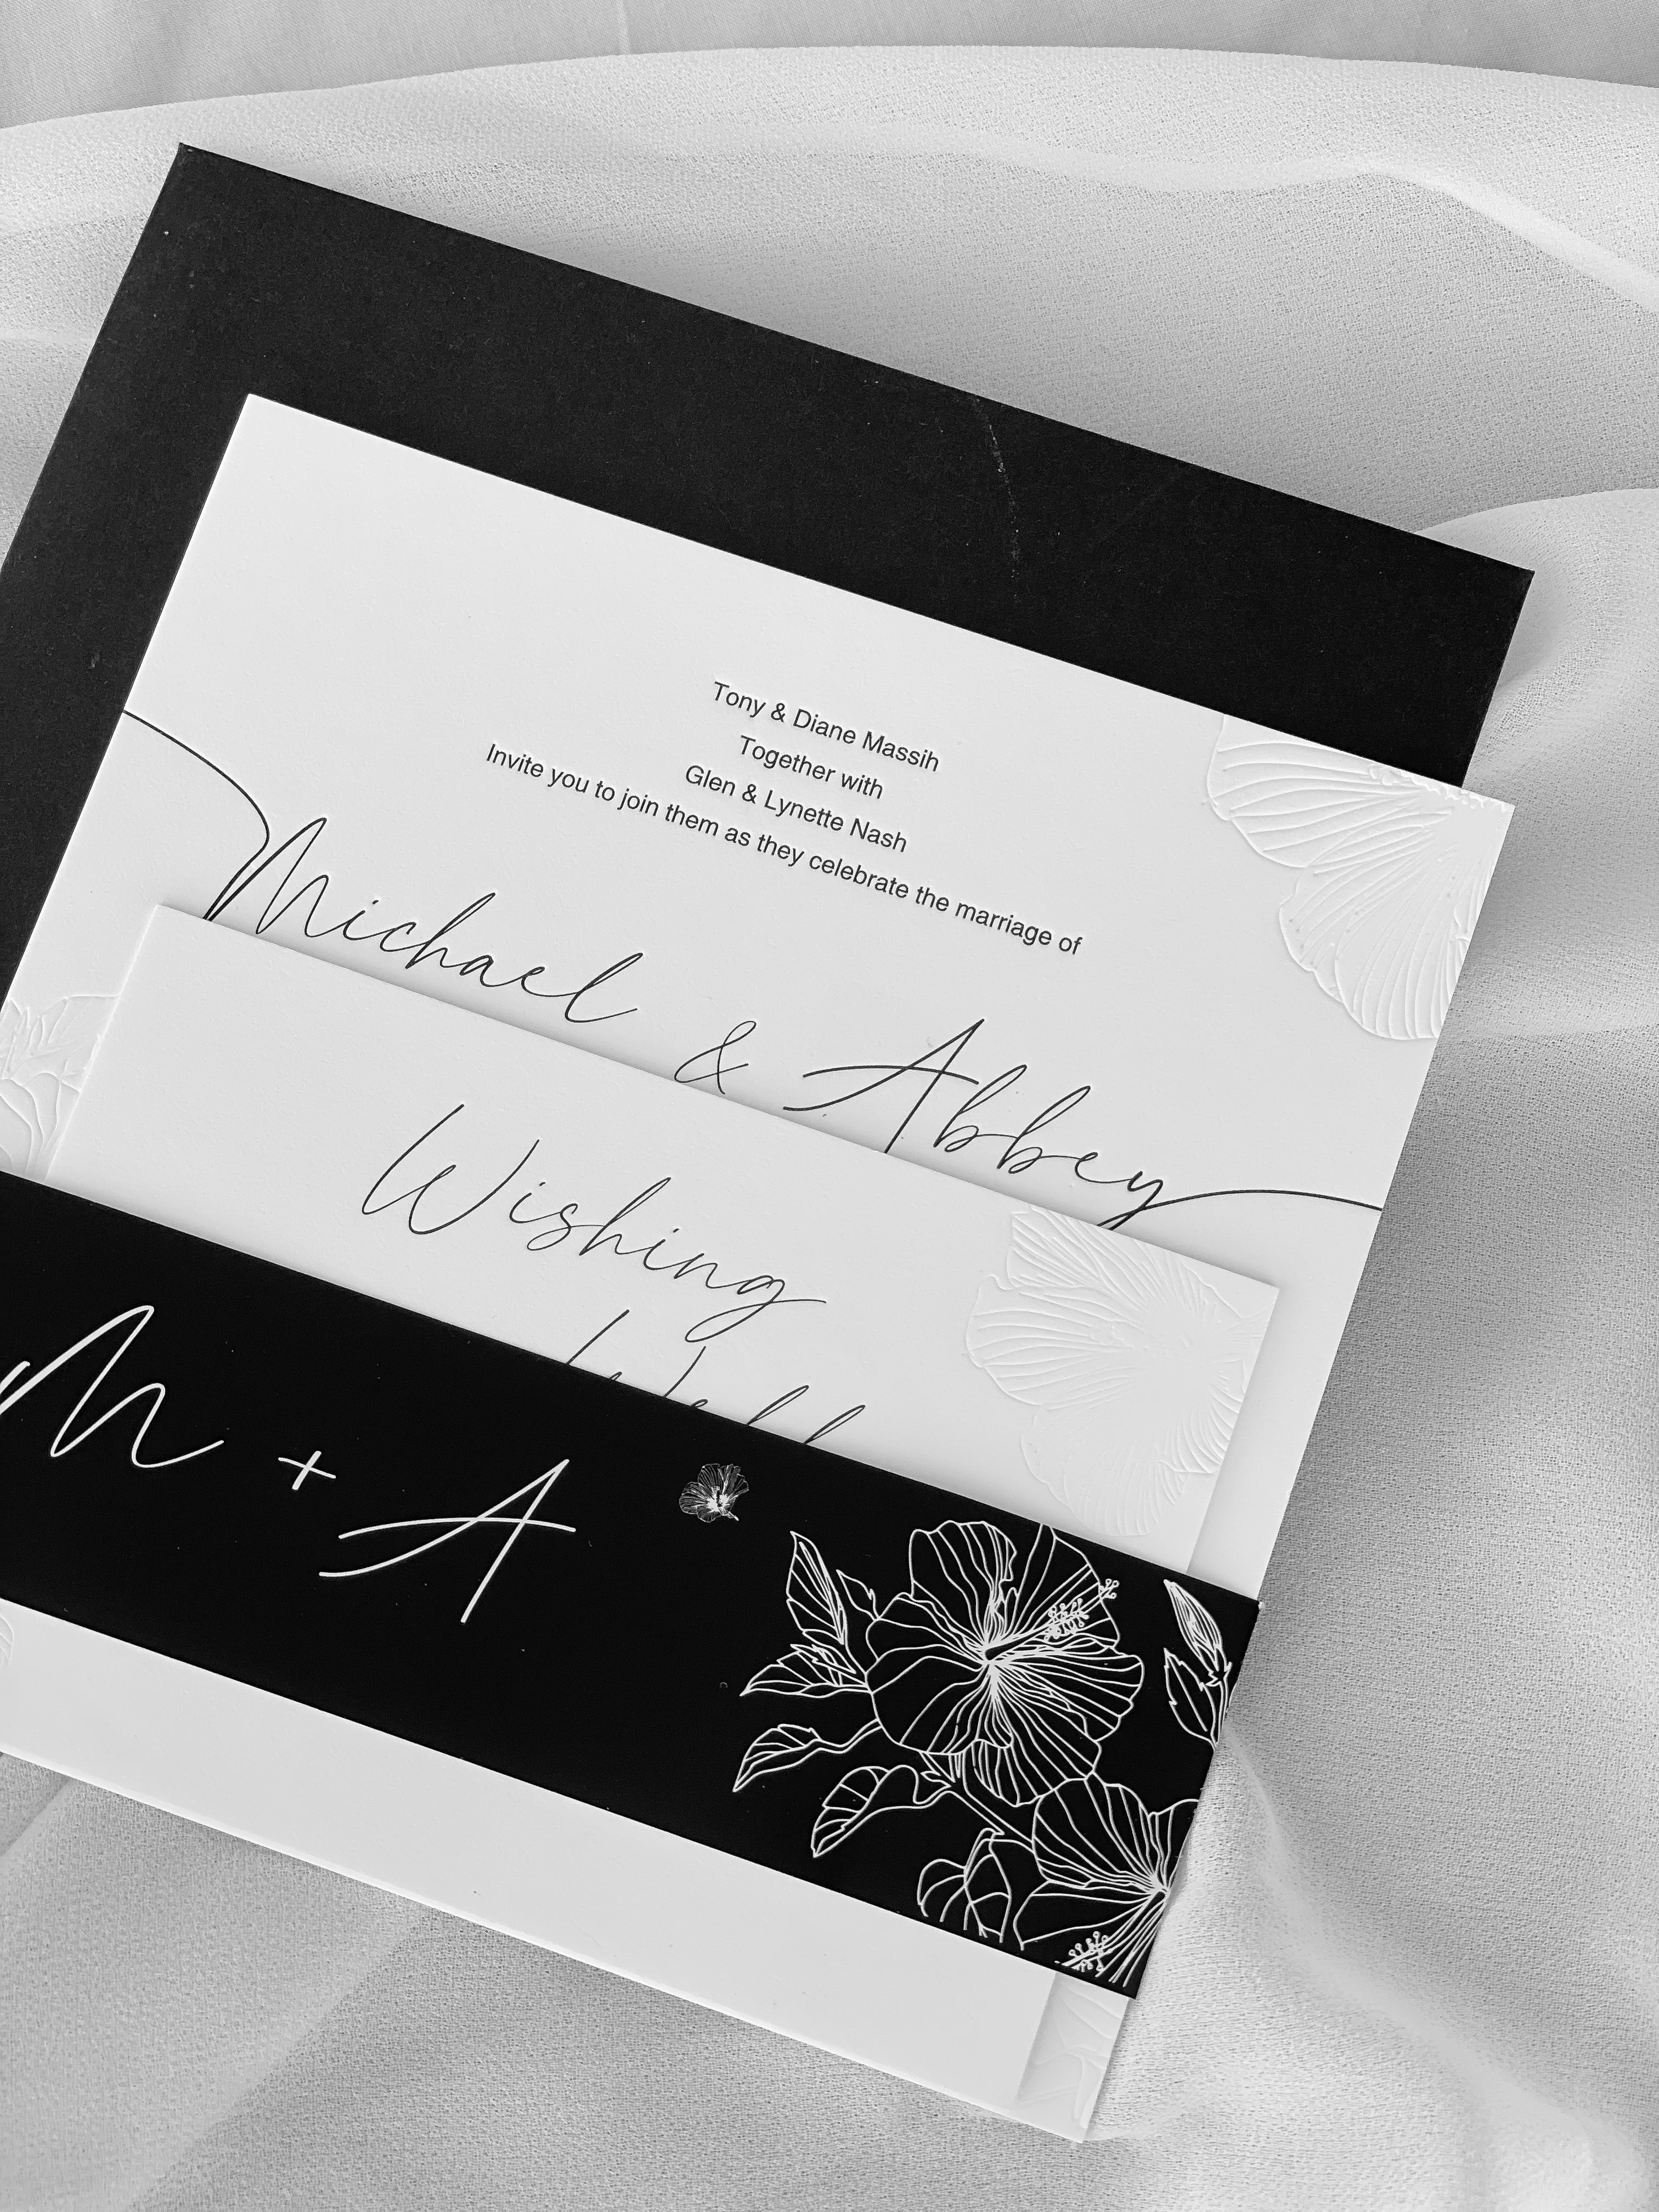 Tony & Diane Massih
Together with
Glen & Lynette Nash
Invite you to join them as they celebrate the marriage of
Michael & Abbey
Wishing
M + A